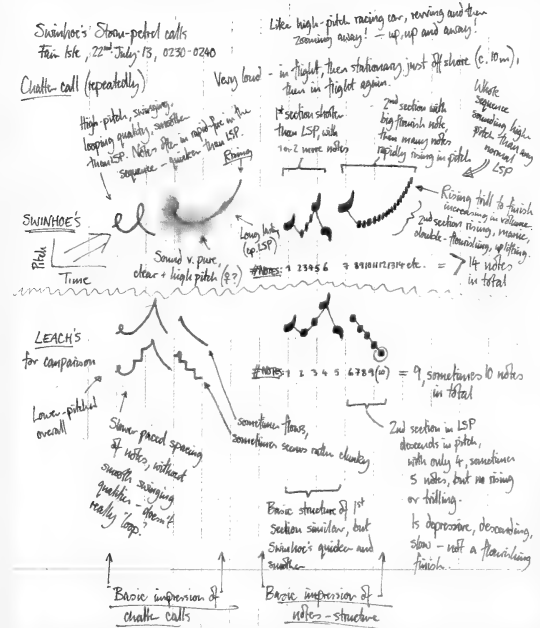 Swinhoe's Storm-petrel calls
Fair Isle, 22nd July-13, 0230-0240
Chatter call (repeatedly)
Like high-pitch racing car, revving and then
zooming away! - up, up and away!
Very loud - in flight, then stationary just off shore (c. 10m),
then in flight again.
High-pitch, swinging,
looping quality, smoother
than LSP. Notes often in rapid-fire in the
sequence - quicker than LSP.
Rising
1st section shorter
than LSP, with
1 or 2 more notes
2nd section with
big flourish note
then many notes
rapidly rising in pitch
Whole
sequence
sounding high
pitch than any
normal
LSP
SWINHOE'S
Pitch
Time
Sound v. pure,
clear + high pitch (♀?)
Long
(cp. LSP)
Rising trill to finish
increasing in volume.
2nd section rising, manic,
double-flourishing, uplifting.
#NOTES: 1 23456 7 8 9 10 11 12 13 14 etc. =
14 notes
in total
LEACH'S
for comparison
Lower-pitched
overall
#NOTES: 1 2 3 4 5 6 7 8 9 (10) = 9, sometimes 10 notes
in total
sometimes flows,
sometimes seems rather clunky
Slower paced spacing
of notes, without
smooth swinging
qualities - doesn't
really 'loop'?
2nd section in LSP
descends in pitch,
with only 4, sometimes
5 notes, but no rising
or trilling.
Is depressive, descending,
slow - not a flourishing
finish.
Basic structure of 1st
Section similar, but
Swinhoe's quicker and
smoother
Basic impression of
chatter calls
Basic impression of
notes-structure